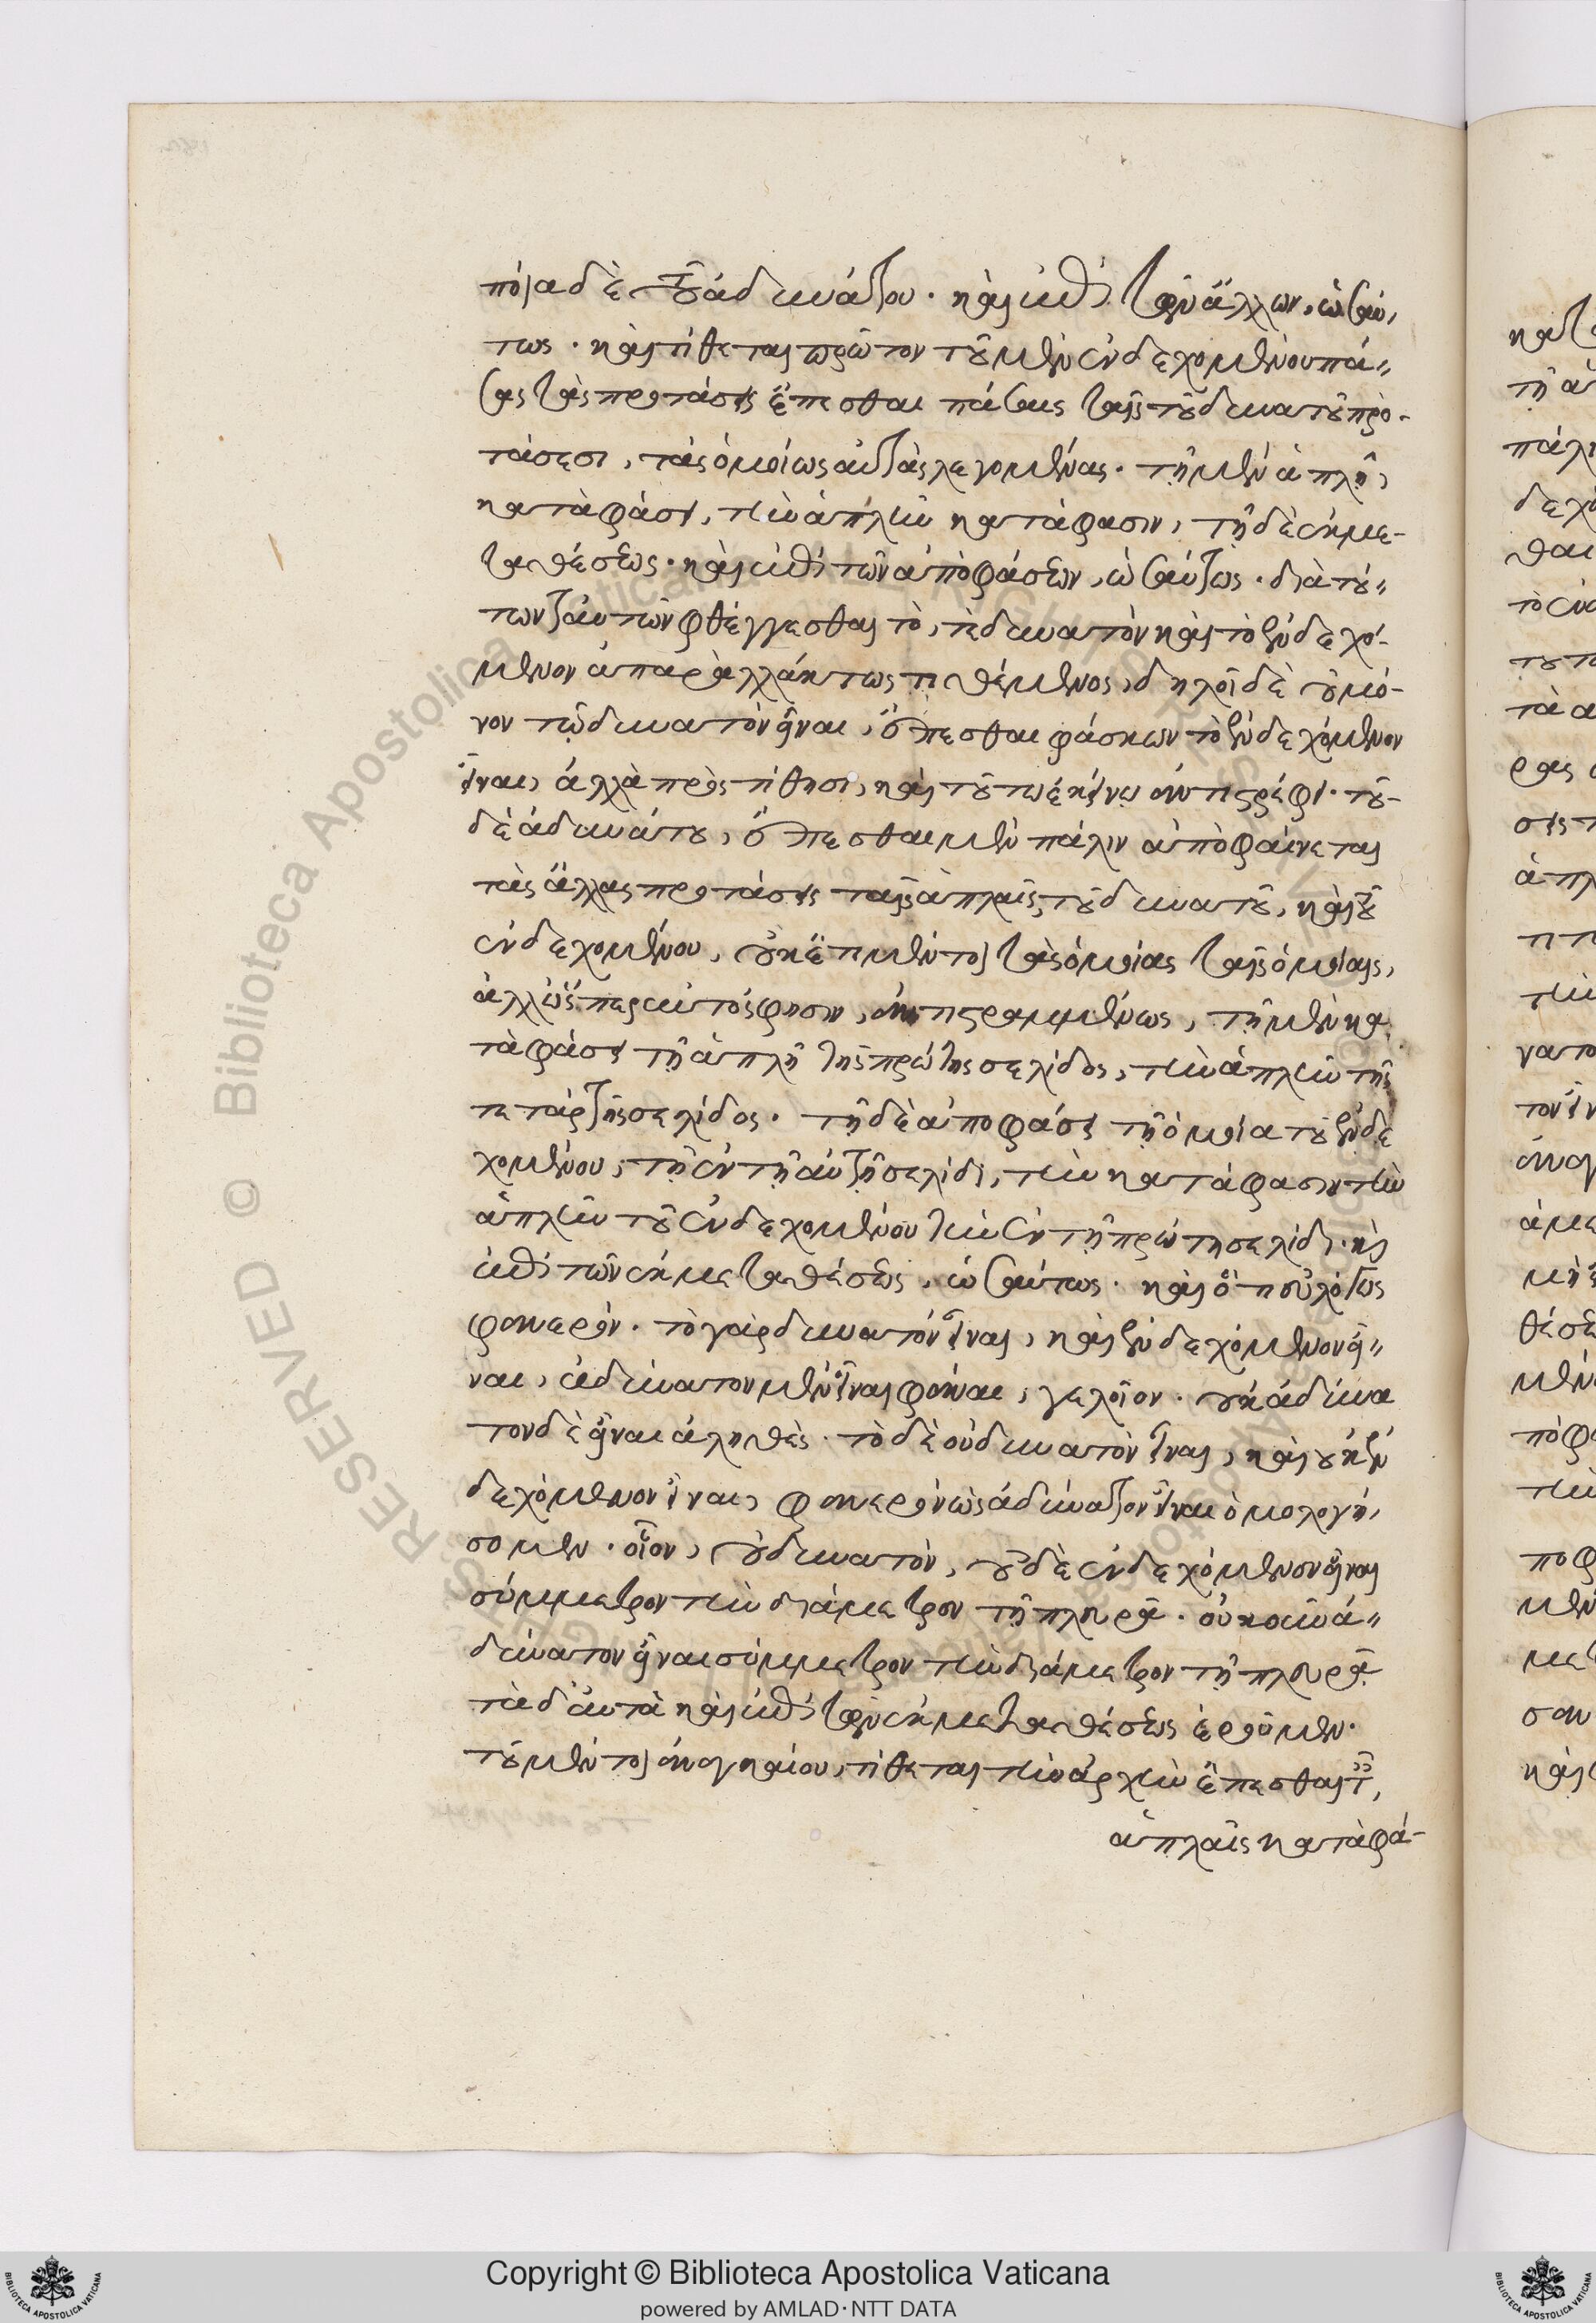 ποῖα δὲ τοῦ ἀδυνάτου. καὶ ἐπὶ τῶν ἄλλων, ὡσαύ-
τως. καὶ τίθεται πρῶτον τοῦ μὲν ἐνδεχομένου πά-
σας τὰς προτάσεις ἕπεσθαι πάσαις ταῖς τοῦ δυνατοῦ προ-
τάσεσι, τὰς ὁμοίως αὐτὰς λεγομένας. τῇ μὲν ἁπλῇ,
καταφάσει, τὴν ἁπλῆν κατάφασιν, τῇ δὲ ἐκ με-
ταθέσεως. καὶ ἐπὶ τῶν ἀποφάσεων, ὡσαύτως. διὰ τού-
των ταυτὸν φθέγγεσθαι τὸ, τε δυνατὸν καὶ τὸ ἐνδεχό-
μενον ἀπαραλλάκτως τιθέμενος, δηλοῖ δὲ οὐ μό-
νον τῷ δυνατὸν εἶναι, ἕπεσθαι φάσκων τὸ ἐνδεχόμενον
εἶναι, ἀλλὰ προστίθησι, καὶ τοῦτω ἐκείνω ἀντιστρέφει. τοῦ
δὲ ἀδυνάτου, ἕπεσθαι μὲν πάλιν ἀποφαίνεται
τὰς ἄλλας προτάσεις ταῖς ἁπλαῖς τοῦ δυνατοῦ, καὶ τοῦ
ἐνδεχομένου, οὐκέτι μέντοι τὰς ὁμοίας ταῖς ὁμοίαις,
ἀλλ' ὥσπερ αὐτός φησιν, ἀντεστραμμένως, τῇ μὲν κα
ταφάσει τῇ ἁπλῇ τῆς πρώτης σελίδος, τὴν ἁπλῆν τῆς
τετάρτης σελίδος. τῇ δὲ ἀποφάσει τῇ ὁμοία τοῦ ἐνδε
χομένου, τῇ ἐν τῇ αὐτῇ σελίδι, τὴν κατάφασιν τὴν
ἁπλῆν τοῦ ἐνδεχομένου τὴν ἐν τῇ πρώτη σελίδι. καὶ
ἐπὶ τῶν ἐκ μεταθέσεως, ὡσαύτως. καὶ ὅτι εὐλόγως
φανερόν. τὸ γὰρ δυνατὸν εἶναι, καὶ ἐνδεχόμενον εἶ-
ναι, ἀδύνατον μὲν εἶναι φάναι, γελοῖον. οὐκ ἀδύνα
τον δὲ εἶναι ἀληθὲς. τὸ δὲ οὐ δυνατὸν εἶναι, καὶ οὐκ ἐν
δεχόμενον εἶναι, φανερὸν ὡς ἀδύνατον εἶναι ὁμολογή-
σομεν. οἷον, οὐ δυνατὸν, οὐδὲ ἐνδεχόμενον εἶναι
σύμμετρον τὴν διάμετρον τῇ πλευρᾷ. οὐκοῦν ἀ-
δύνατον εἶναι σύμμετρον τὴν διάμετρον τῇ πλευρᾷ
τὰ δ' αὐτὰ καὶ ἐπὶ τῶν ἐκ μεταθέσεως ἐροῦμεν.
τοῦ μέντοι ἀναγκαίου, τίθεται τὴν ἀρχὴν ἕπεσθαι ταῖς
ἁπλαῖς καταφά-